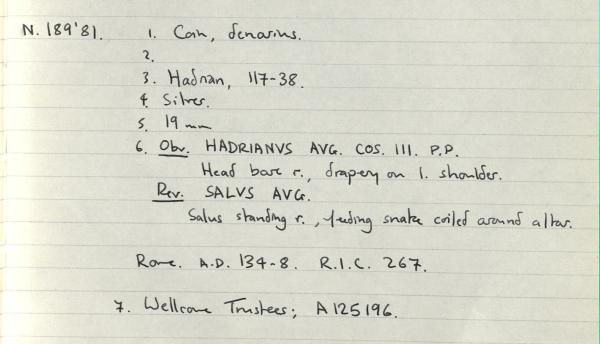 N. 189'81. 1. Coin, denarius.
2.
3. Hadrian, 117-38.
4. Silver.
5. 19 mm
6. Obv. HADRIANVS AVG. COS. III. P.P.
Head bare r., drapery on l. shoulder.
Rev. SALVS AVG.
Salus standing r., feeding snake coiled around altar.
Rome. A.D. 134-8. R.I.C. 267.
7. Wellcome Trustees; A125196.